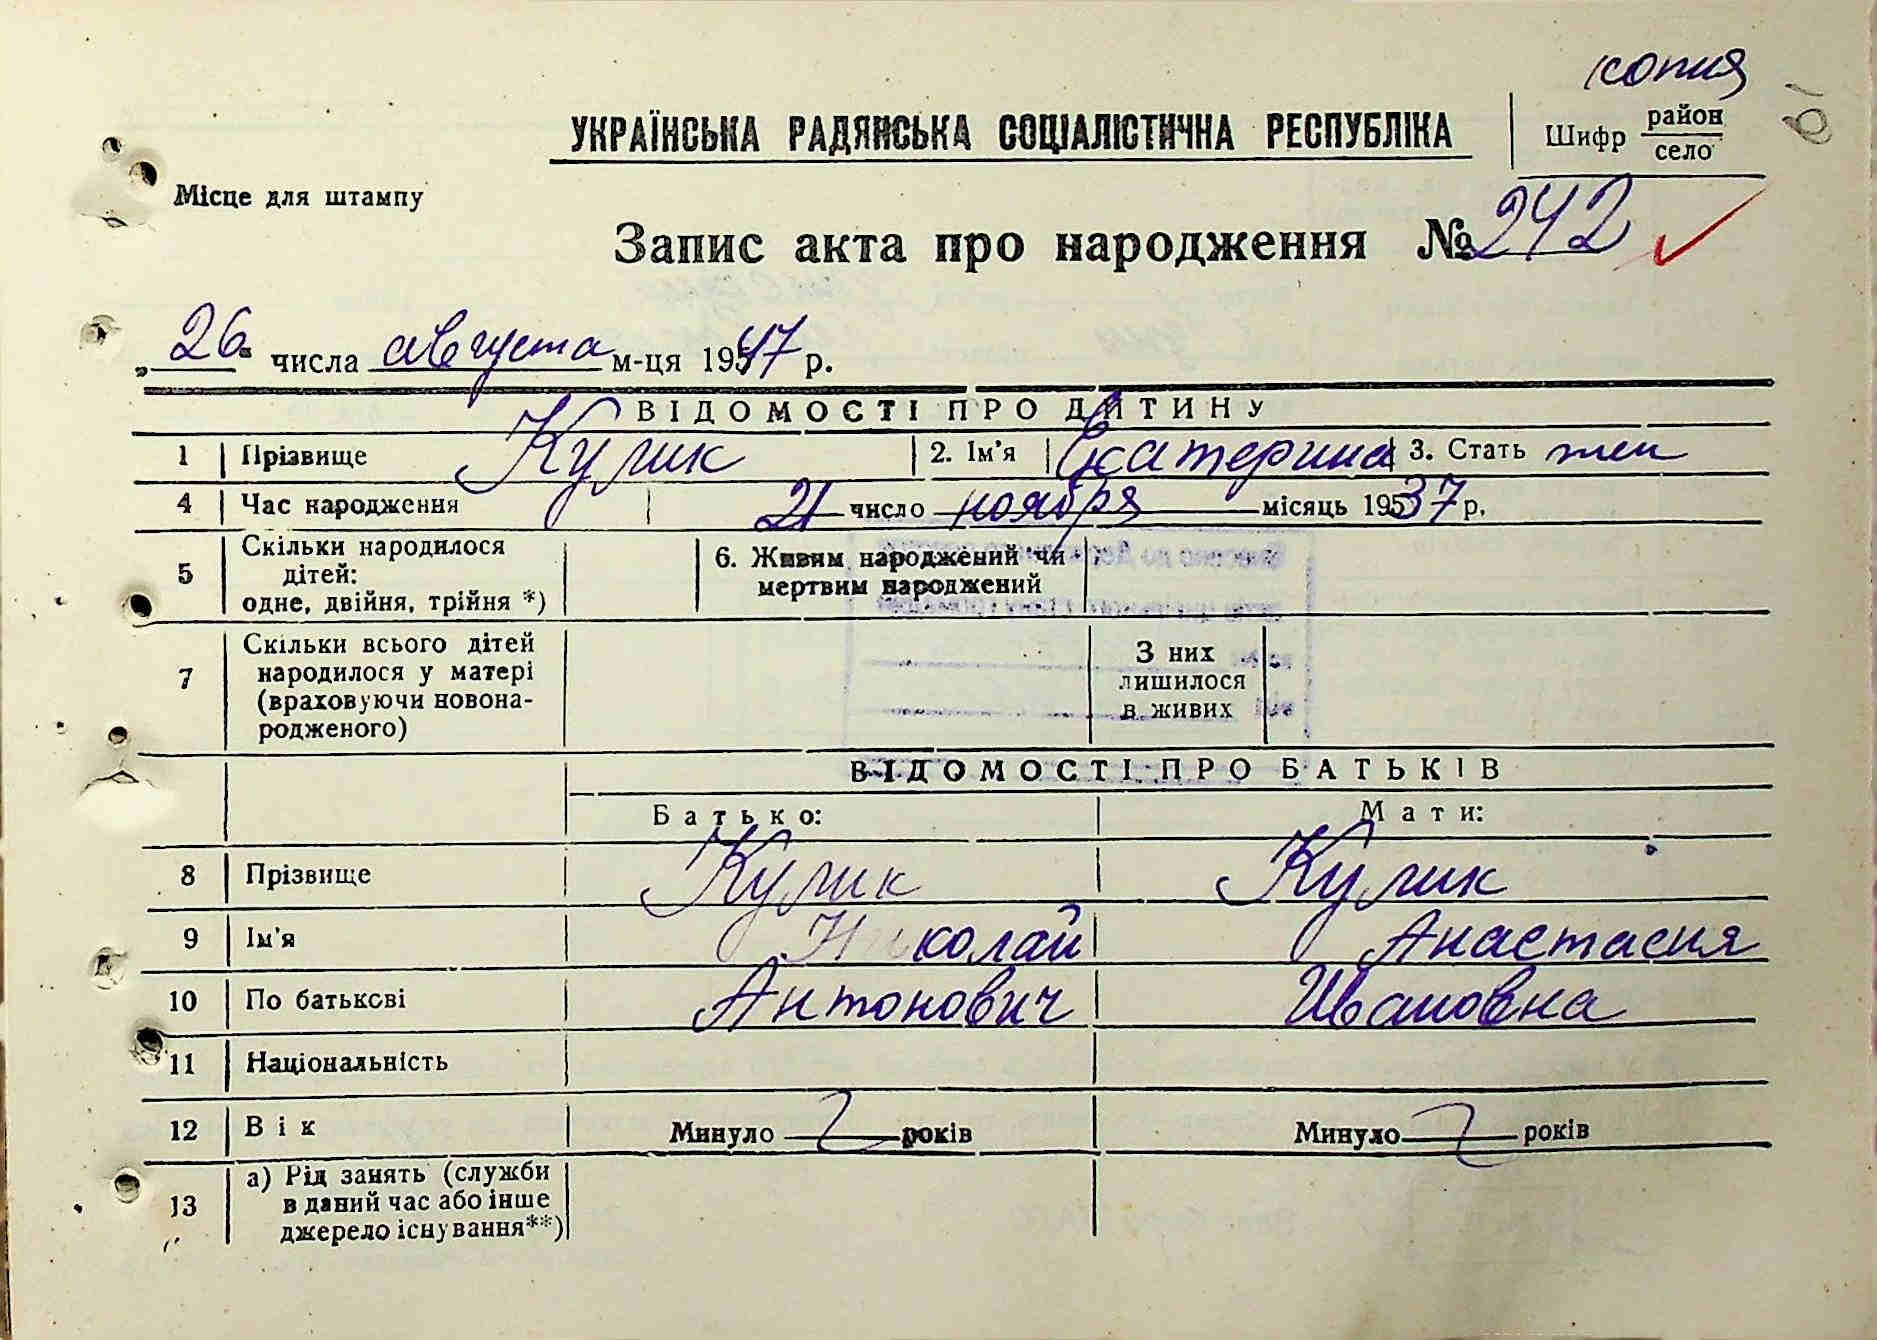 копия
УКРАЇНСЬКА РАДЯНСЬКА СОЦІАЛІСТИЧНА РЕСПУБЛІКА
Шифр район
село
Місце для штампу
Запис акта про народження № 242
„26" числа августа м-ця 1947 р.
ВІДОМОСТІ ПРО ДИТИНУ
1 Прізвище Кулик 2. Ім'я Екатерина 3. Стать жен
4 Час народження 21 число ноября місяць 1937 р.
5 Скільки народилося дітей: одне, двійня, трійня *) 6. Живим народжений чи мертвим народжений
7 Скільки всього дітей народилося у матері (враховуючи новонародженого) З них лишилося в живих
ВІДОМОСТІ ПРО БАТЬКІВ
Батько: Мати:
8 Прізвище Кулик Кулик
9 Ім'я Николай Анастасия
10 По батькові Антонович Ивановна
11 Національність
12 Вік Минуло років Минуло років
13 а) Рід занять (служби в даний час або інше джерело існування**)